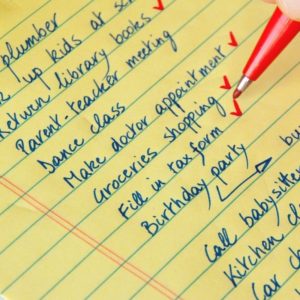 plumber
up kids at
Return library books
Parent-teacher meeting
Dance class
Make doctor appointment
Groceries shopping
Fill in tax form
Birthday party
Call babysitter
Kitchen
Car